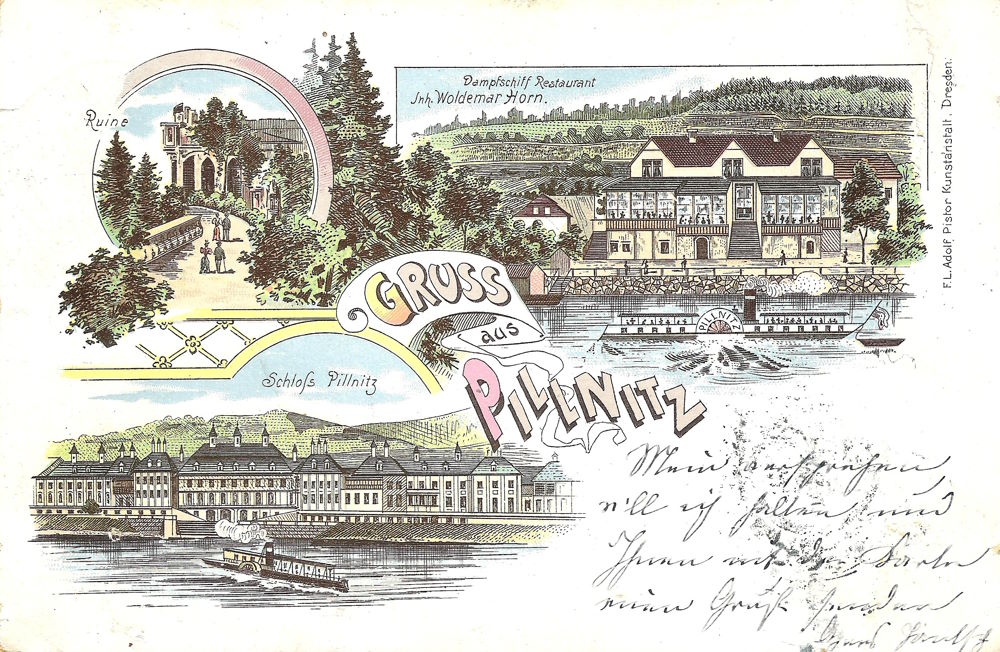 Ruine
Dampfschiff Restaurant
Inh. Woldemar Horn.
F. L. Adolf Pistor Kunstanstalt. Dresden.
GRUSS
aus
PILLNITZ
PILLNITZ
Schloſs Pillnitz
Mein versprechen
will ich halten und
Ihnen mit der Karte
einen Gruß senden